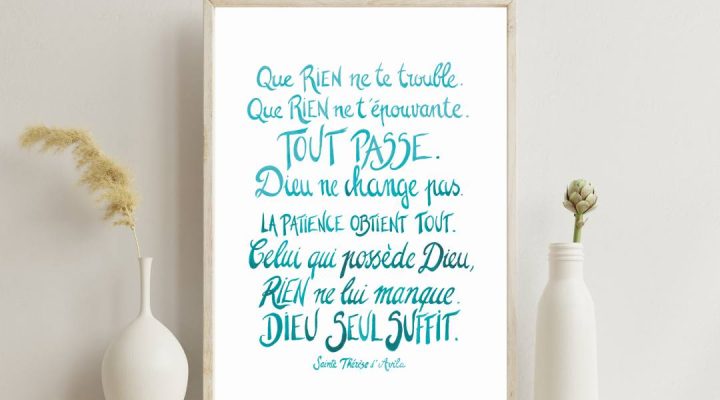 Que RIEN ne te trouble.
Que RIEN ne t'épouvante.
TOUT PASSE.
Dieu ne change pas.
LA PATIENCE OBTIENT TOUT.
Celui qui possède Dieu,
RIEN ne lui manque.
DIEU SEUL SUFFIT.
Sainte Thérèse d'Avila